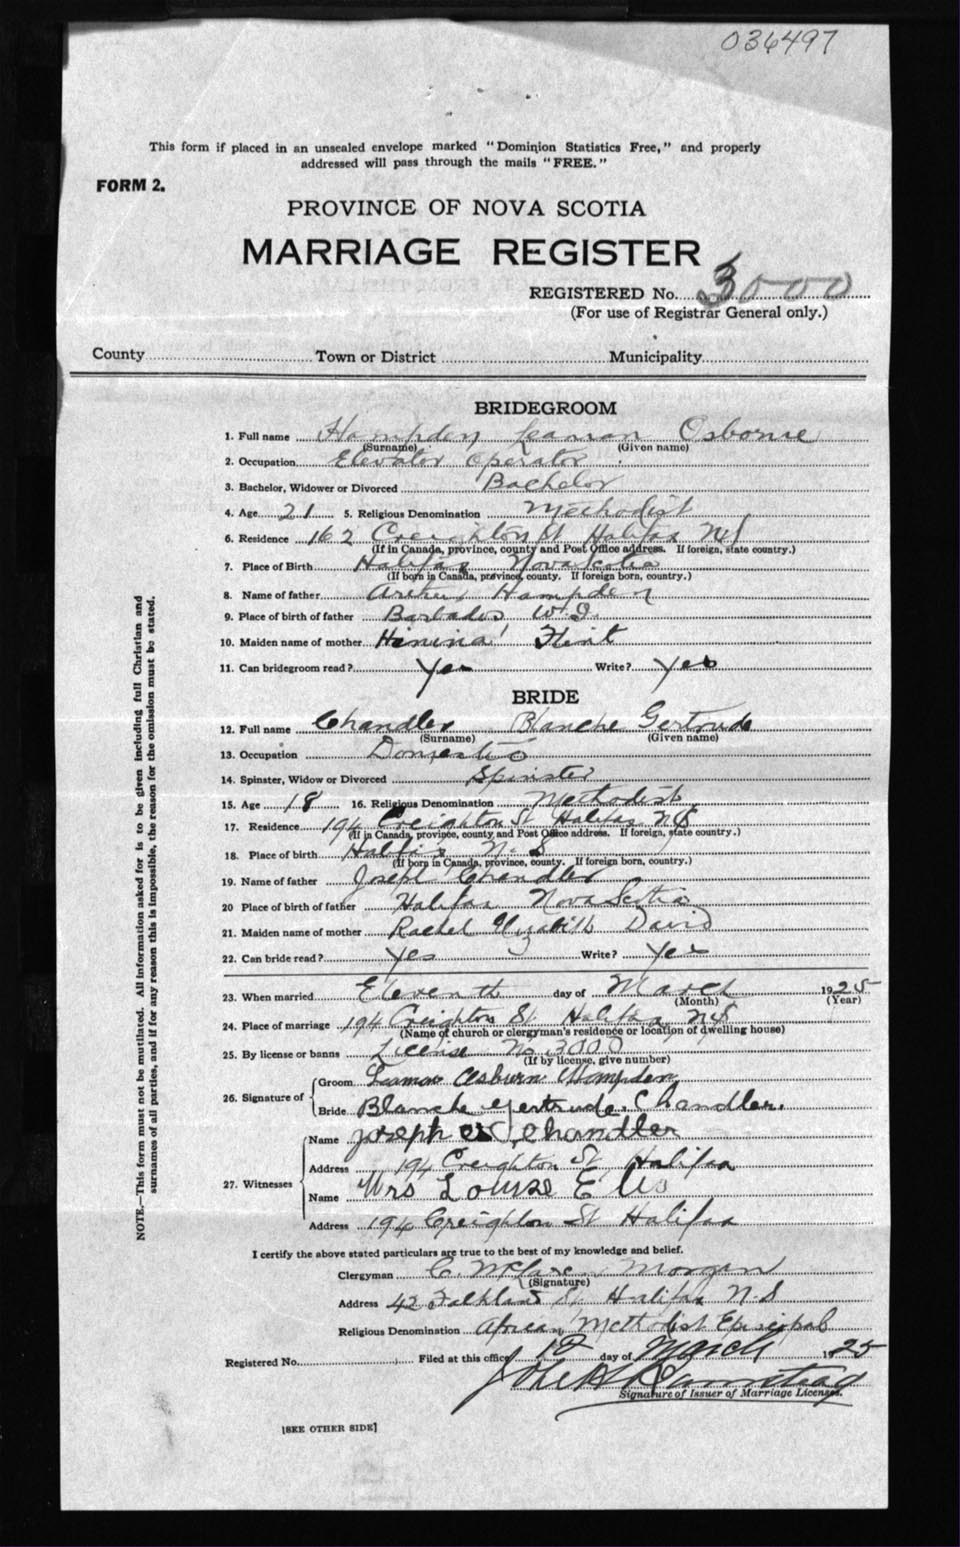 036497
This form if placed in an unsealed envelope marked "Dominion Statistics Free," and properly
addressed will pass through the mails "FREE."
FORM 2.
PROVINCE OF NOVA SCOTIA
MARRIAGE REGISTER
REGISTERED No. 3000
(For use of Registrar General only.)
County Town or District Municipality
BRIDEGROOM
1. Full name Hampden Osborne
(Surname) (Given name)
2. Occupation Elevator Operator
3. Bachelor, Widower or Divorced Bachelor
4. Age 21 5. Religious Denomination Methodist
6. Residence 162 Creighton St Halifax NS
(If in Canada, province, county and Post Office address. If foreign, state country.)
7. Place of Birth Halifax Nova Scotia
(If born in Canada, province, county. If foreign born, country.)
8. Name of father Arthur Hampden
9. Place of birth of father Barbados W.I.
10. Maiden name of mother Flint
11. Can bridegroom read? Yes Write? Yes
BRIDE
12. Full name Chandler Blanche Gertrude
(Surname) (Given name)
13. Occupation Domestic
14. Spinster, Widow or Divorced Spinster
15. Age 18 16. Religious Denomination Methodist
17. Residence 194 Creighton St Halifax NS
(If in Canada, province, county and Post Office address. If foreign, state country.)
18. Place of birth Halifax N.S
(If born in Canada, province, county. If foreign born, country.)
19. Name of father Joseph Chandler
20 Place of birth of father Halifax Nova Scotia
21. Maiden name of mother Rachel Elizabeth David
22. Can bride read? Yes Write? Yes
23. When married Eleventh day of March 1925
(Month) (Year)
24. Place of marriage 194 Creighton St Halifax NS
(Name of church or clergyman's residence or location of dwelling house)
25. By license or banns License No 3000
(If by license, give number)
26. Signature of
Groom Lamon Osburn Hampden
Bride Blanche Gertrude Chandler.
27. Witnesses
Name Joseph Chandler
Address 194 Creighton St Halifax
Name Mrs Louise Ellis
Address 194 Creighton St Halifax
I certify the above stated particulars are true to the best of my knowledge and belief.
Clergyman C. Morgan
(Signature)
Address 42 Falkland St Halifax N.S
Religious Denomination African Methodist Episcopal
Registered No. Filed at this office day of March 1925
Signature of Issuer of Marriage Licenses.
[SEE OTHER SIDE]
NOTE.—This form must not be mutilated. All information asked for is to be given including full Christian and
surnames of all parties, and if for any reason this is impossible, the reason for the omission must be stated.